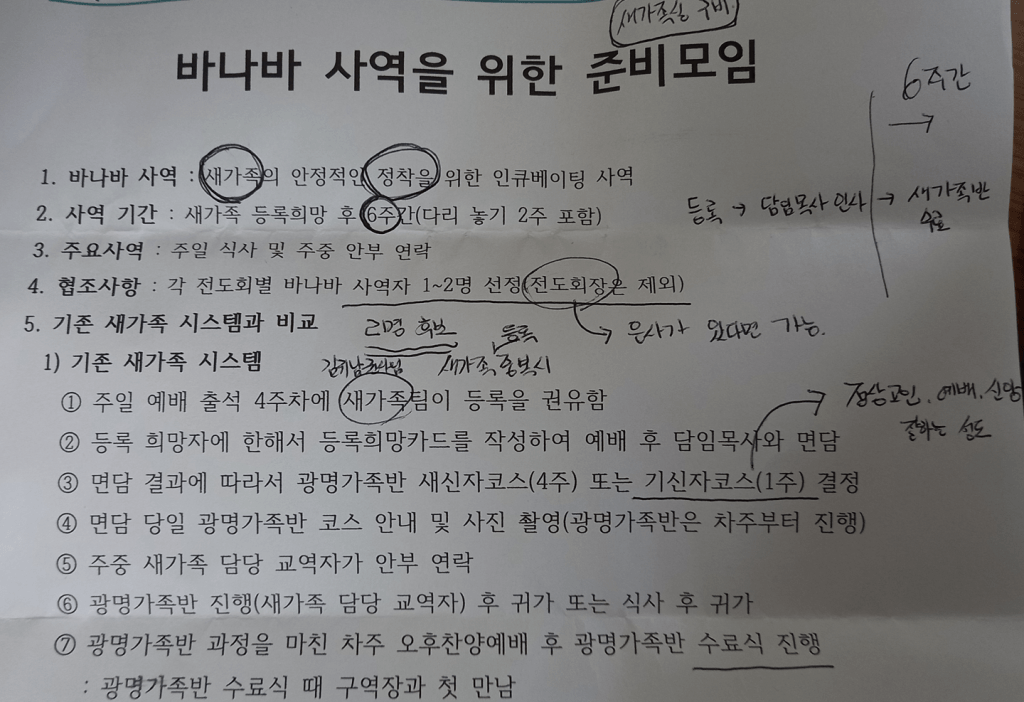 새가족실 구비
바나바 사역을 위한 준비모임
6주간
→
1. 바나바 사역 : 새가족의 안정적인 정착을 위한 인큐베이팅 사역
2. 사역 기간 : 새가족 등록희망 후 6주간(다리 놓기 2주 포함)
등록 → 담임목사 인사 → 새가족반
수료
3. 주요사역 : 주일 식사 및 주중 안부 연락
4. 협조사항 : 각 전도회별 바나바 사역자 1~2명 선정(전도회장은 제외)
5. 기존 새가족 시스템과 비교
2명 후보
등록
→ 은사가 있다면 가능.
1) 기존 새가족 시스템
새가족
① 주일 예배 출석 4주차에 새가족팀이 등록을 권유함
정상교인, 예배, 신앙
잘하는 성도
② 등록 희망자에 한해서 등록희망카드를 작성하여 예배 후 담임목사와 면담
③ 면담 결과에 따라서 광명가족반 새신자코스(4주) 또는 기신자코스(1주) 결정
④ 면담 당일 광명가족반 코스 안내 및 사진 촬영(광명가족반은 차주부터 진행)
⑤ 주중 새가족 담당 교역자가 안부 연락
⑥ 광명가족반 진행(새가족 담당 교역자) 후 귀가 또는 식사 후 귀가
⑦ 광명가족반 과정을 마친 차주 오후찬양예배 후 광명가족반 수료식 진행
: 광명가족반 수료식 때 구역장과 첫 만남